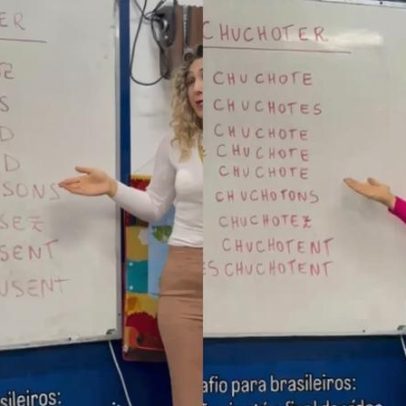 ER
S
D
D
SONS
SEZ
SENT
USENT
sileiros:
CHUCHOTER
CHUCHOTE
CHUCHOTES
CHUCHOTE
CHUCHOTE
CHUCHOTE
CHUCHOTONS
CHUCHOTEZ
CHUCHOTENT
ES CHUCHOTENT
afio para brasileiros: